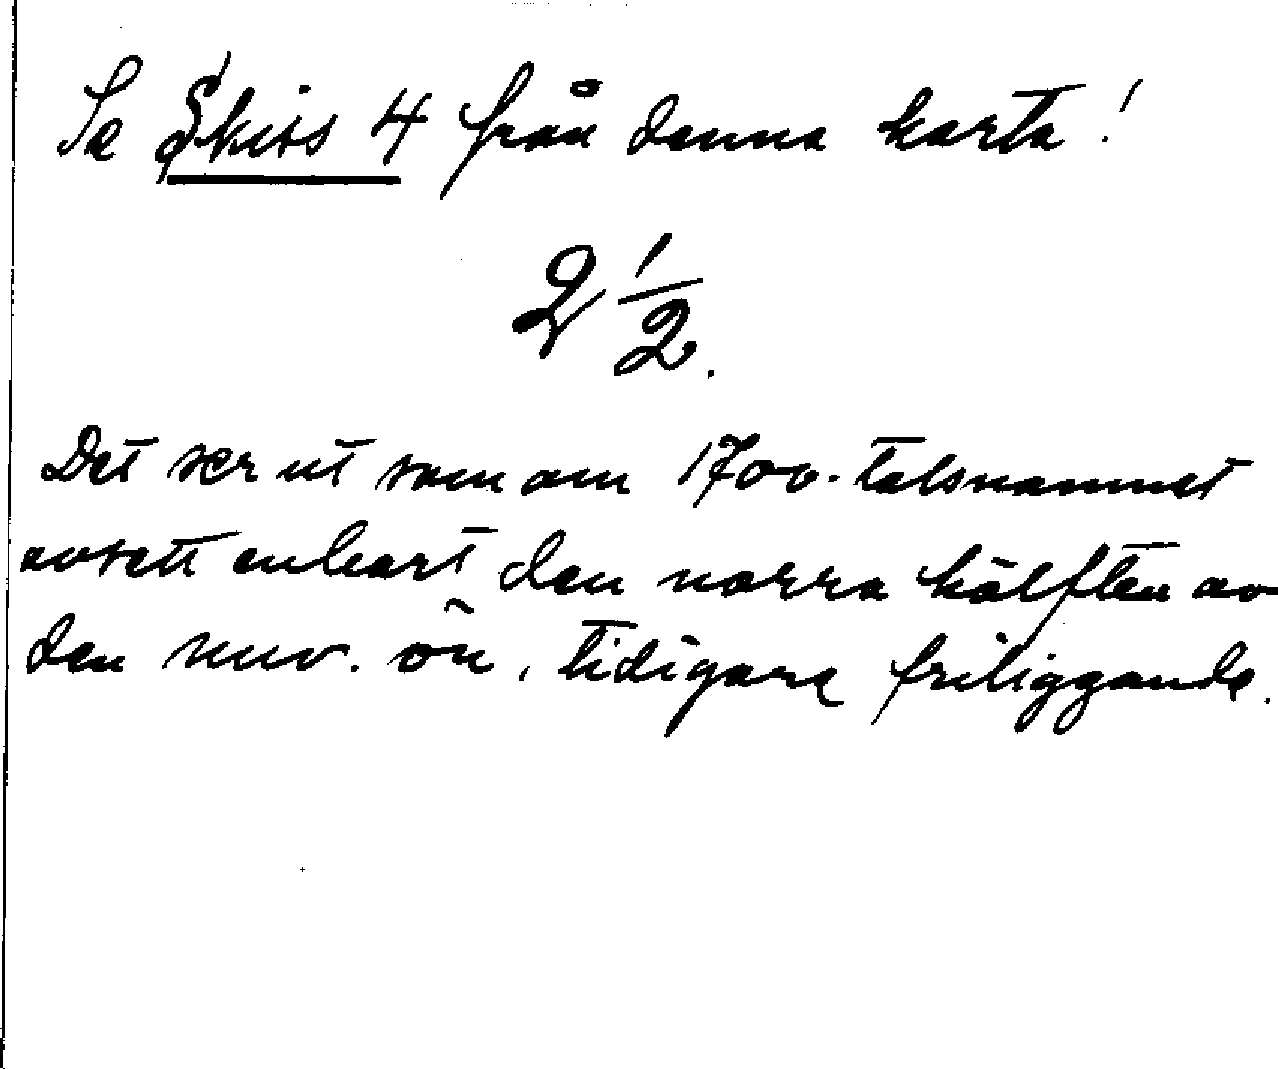 Se Skiss 4 från denna karta!
2 1/2.
Det ser ut som om 1700-talsnamnet
avsett enbart den norra hälften av
den nuv. ön, tidigare friliggande.